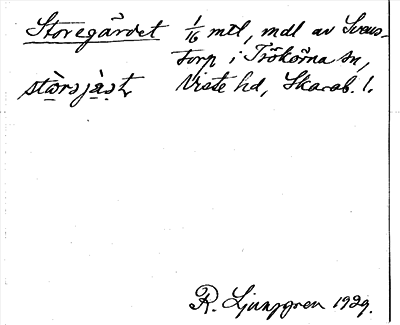 Storegärdet 1/16 mtl, mdl av Svens-
torp i Trökörna sn,
Viste hd, Skarab. l.
R. Ljunggren 1929.